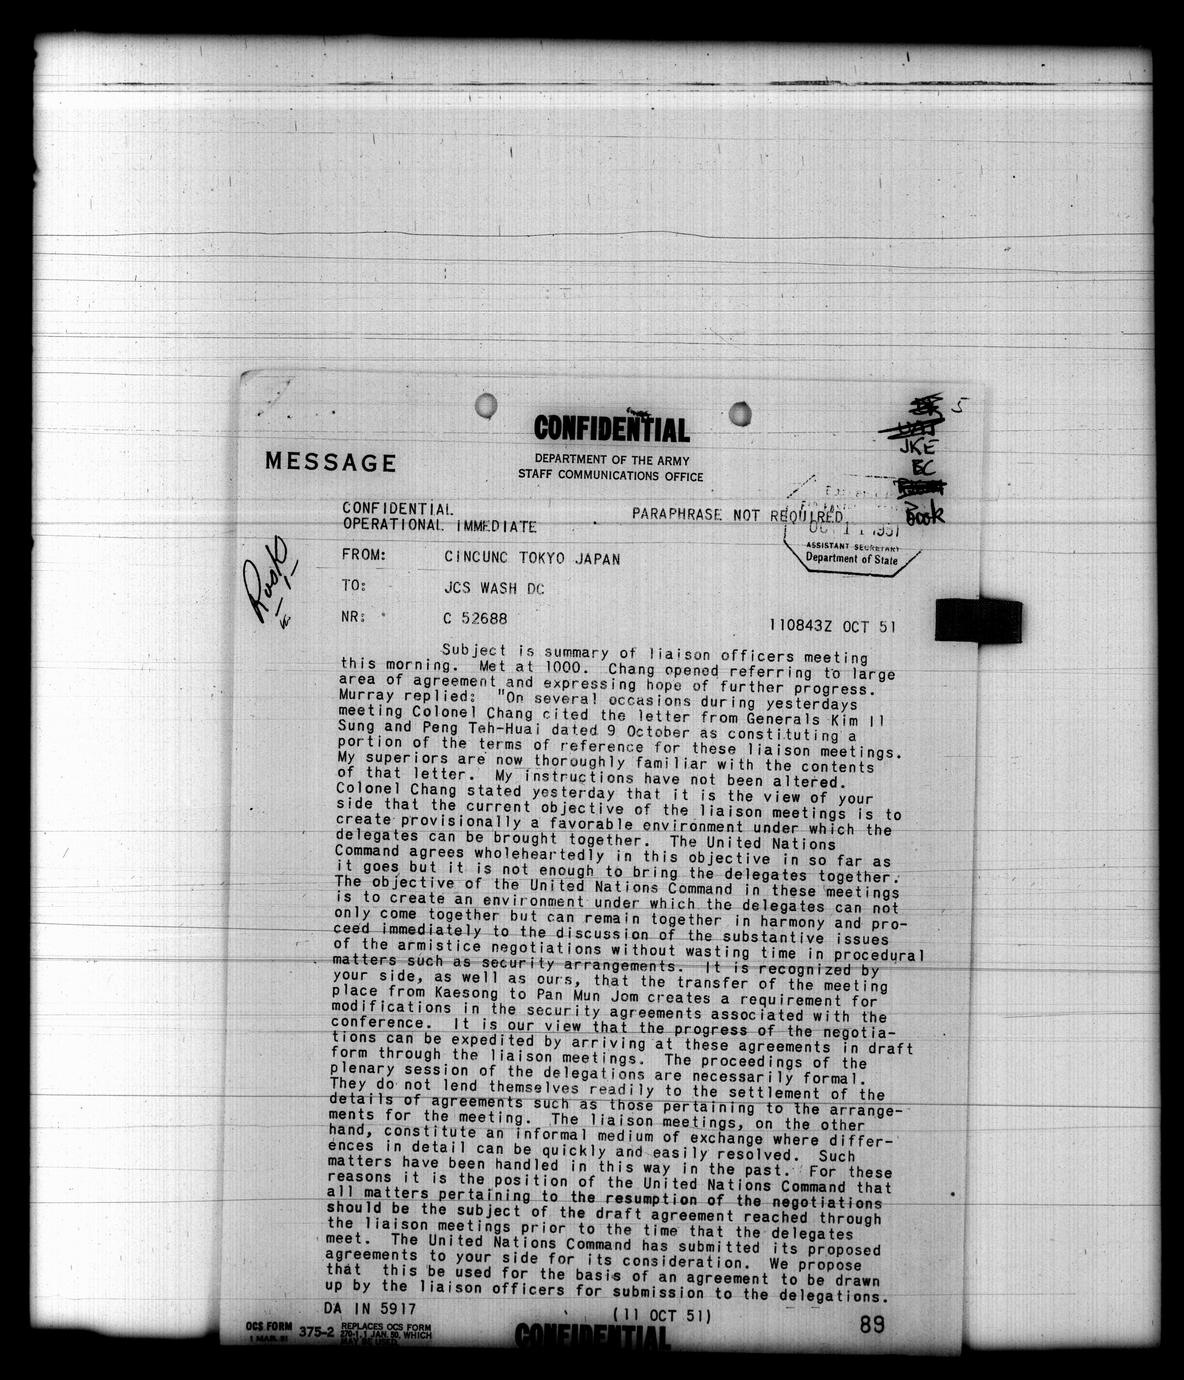 5
CONFIDENTIAL
JKE
DEPARTMENT OF THE ARMY
MESSAGE
STAFF COMMUNICATIONS OFFICE
CONFIDENTIAL
PARAPHRASE NOT REQUIRED
OPERATIONAL IMMEDIATE
ASSISTANT SECRETARY
Department of State
Rusk
FROM: CINCUNC TOKYO JAPAN
TO: JCS WASH DC
NR: C 52688
110843Z OCT 51
Subject is summary of liaison officers meeting
this morning. Met at 1000. Chang opened referring to large
area of agreement and expressing hope of further progress.
Murray replied: "On several occasions during yesterdays
meeting Colonel Chang cited the letter from Generals Kim Il
Sung and Peng Teh-Huai dated 9 October as constituting a
portion of the terms of reference for these liaison meetings.
My superiors are now thoroughly familiar with the contents
of that letter. My instructions have not been altered.
Colonel Chang stated yesterday that it is the view of your
side that the current objective of the liaison meetings is to
create provisionally a favorable environment under which the
delegates can be brought together. The United Nations
Command agrees wholeheartedly in this objective in so far as
it goes but it is not enough to bring the delegates together.
The objective of the United Nations Command in these meetings
is to create an environment under which the delegates can not
only come together but can remain together in harmony and pro-
ceed immediately to the discussion of the substantive issues
of the armistice negotiations without wasting time in procedural
matters such as security arrangements. It is recognized by
your side, as well as ours, that the transfer of the meeting
place from Kaesong to Pan Mun Jom creates a requirement for
modifications in the security agreements associated with the
conference. It is our view that the progress of the negotia-
tions can be expedited by arriving at these agreements in draft
form through the liaison meetings. The proceedings of the
plenary session of the delegations are necessarily formal.
They do not lend themselves readily to the settlement of the
details of agreements such as those pertaining to the arrange-
ments for the meeting. The liaison meetings, on the other
hand, constitute an informal medium of exchange where differ-
ences in detail can be quickly and easily resolved. Such
matters have been handled in this way in the past. For these
reasons it is the position of the United Nations Command that
all matters pertaining to the resumption of the negotiations
should be the subject of the draft agreement reached through
the liaison meetings prior to the time that the delegates
meet. The United Nations Command has submitted its proposed
agreements to your side for its consideration. We propose
that this be used for the basis of an agreement to be drawn
up by the liaison officers for submission to the delegations.
DA IN 5917
(11 OCT 51)
89
OCS FORM 375-2
1 MAR. 51
REPLACES OCS FORM
270-1, 1 JAN. 50, WHICH
MAY BE USED.
CONFIDENTIAL